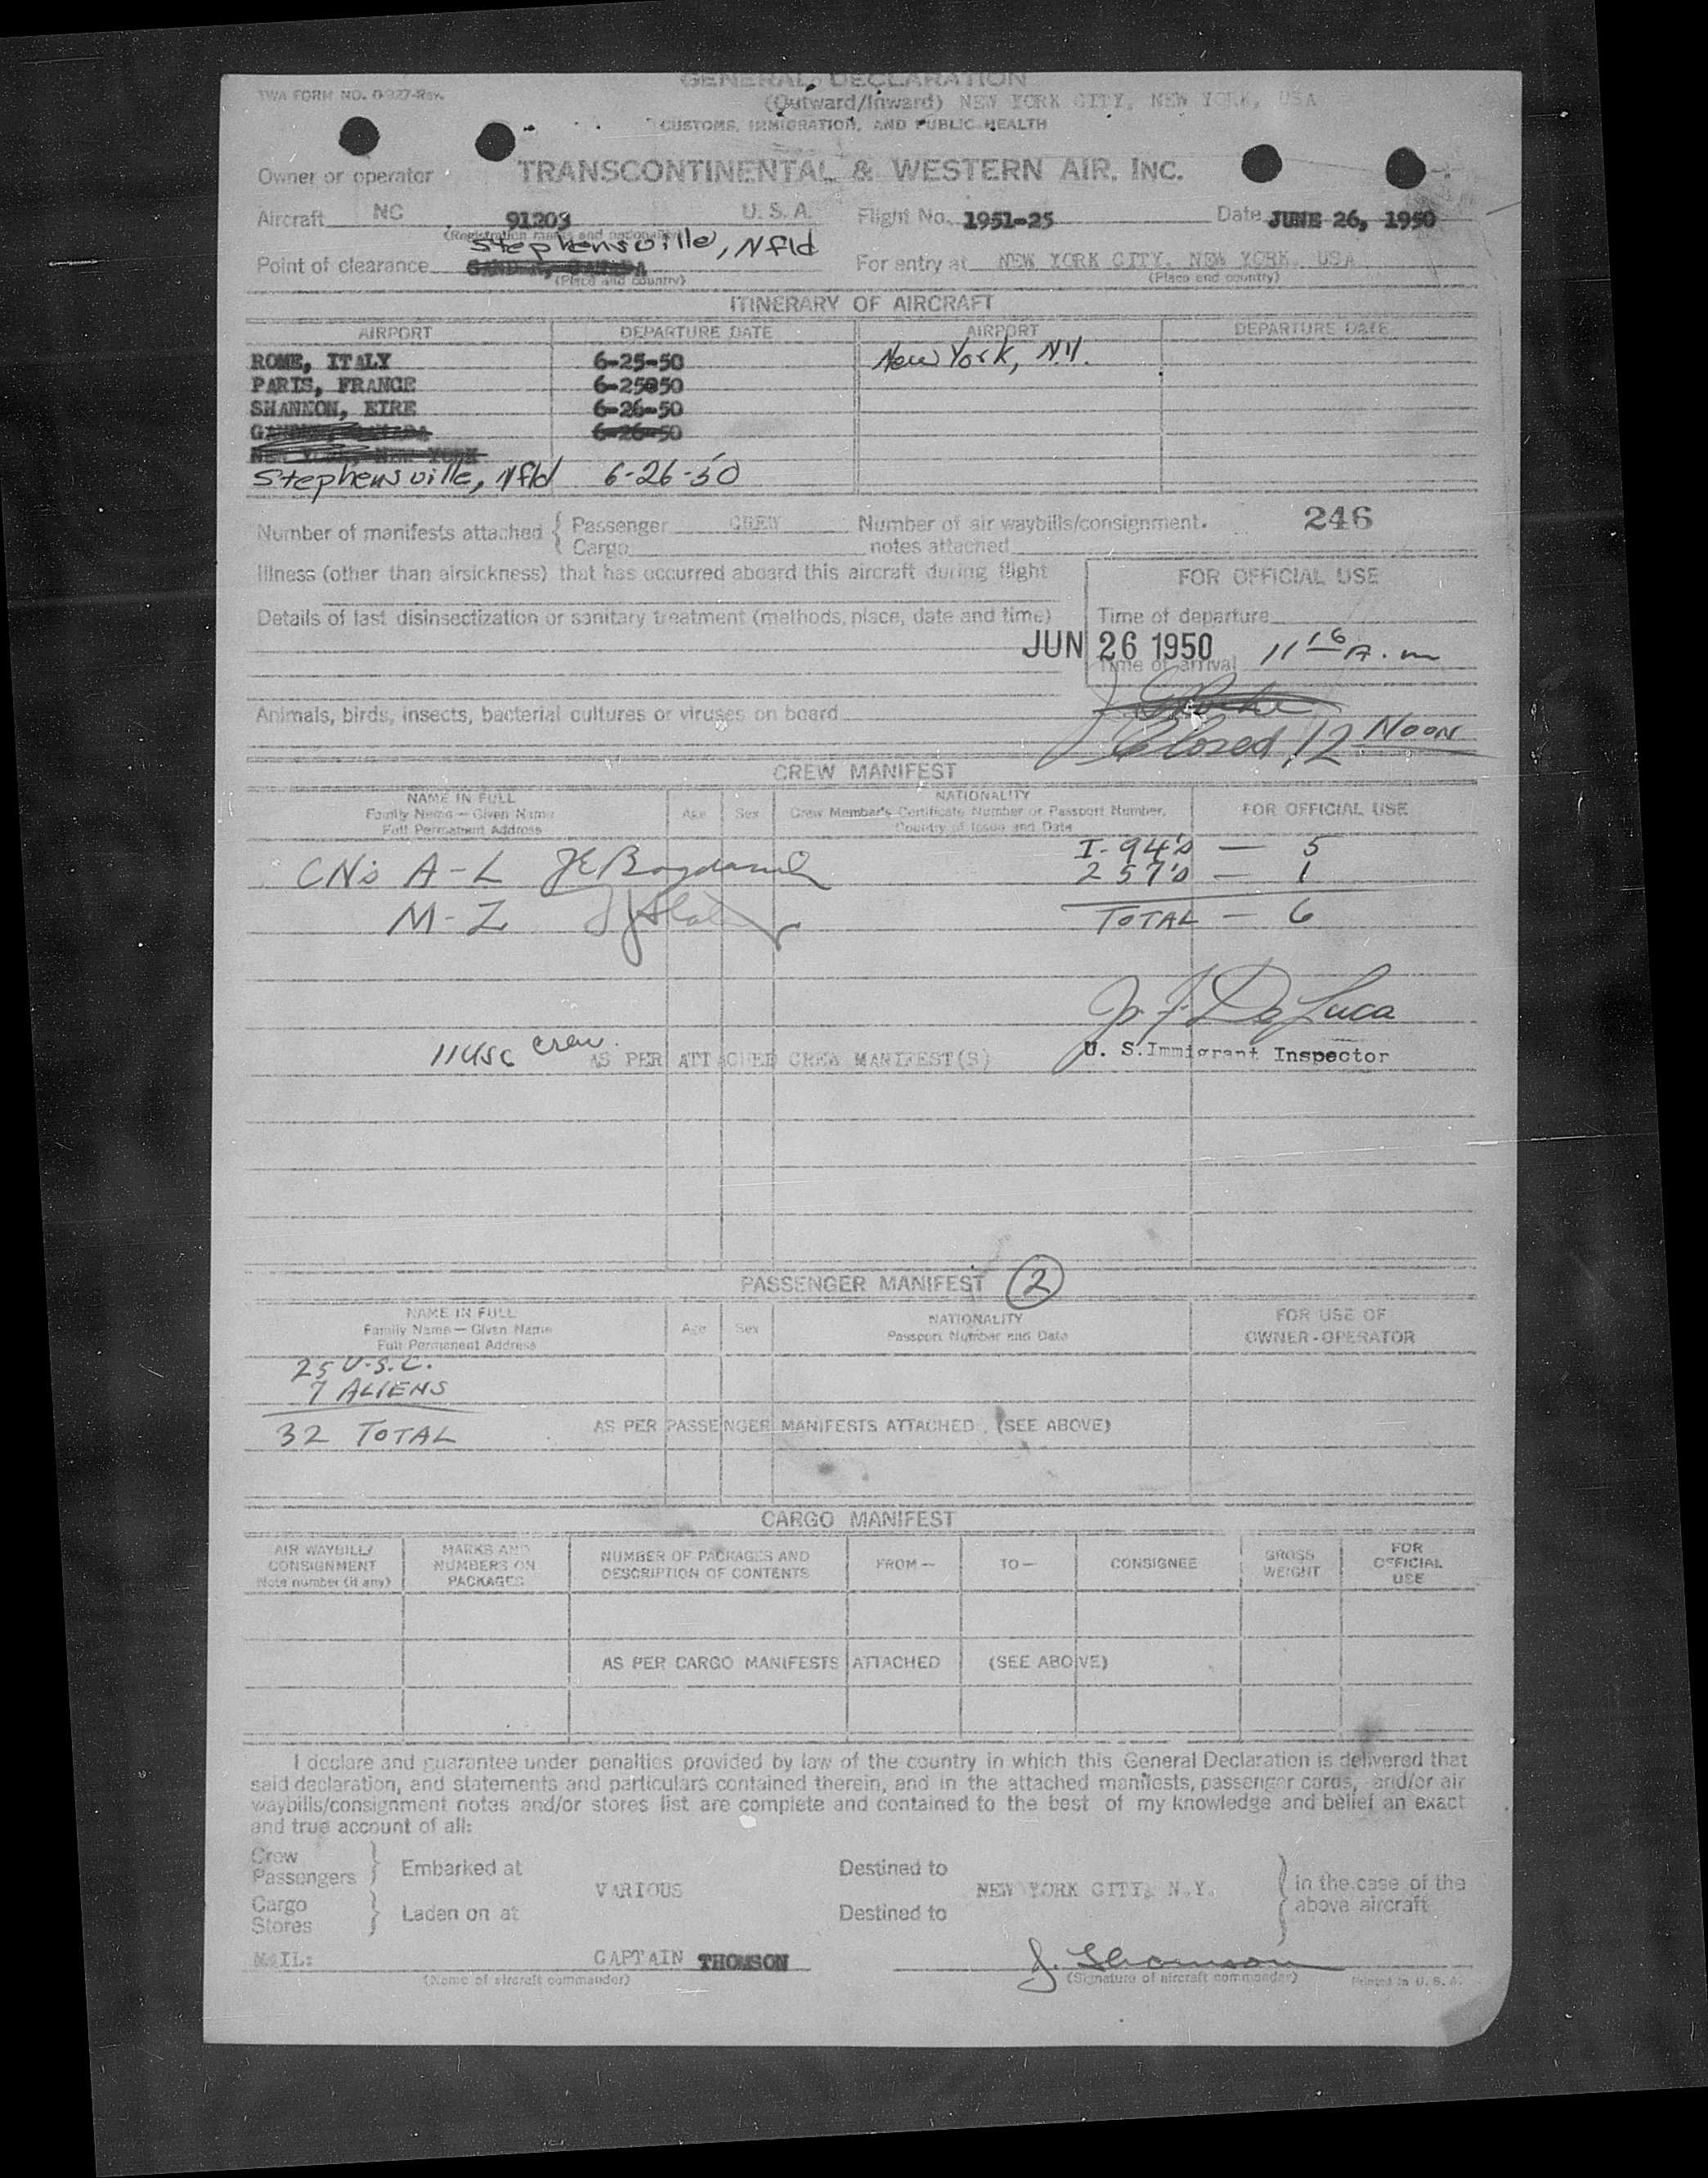 GENERAL DECLARATION
TWA FORM NO. 0-927-Rev.
(Outward/Inward) NEW YORK CITY, NEW YORK, USA
CUSTOMS, IMMIGRATION, AND PUBLIC HEALTH
Owner or operator TRANSCONTINENTAL & WESTERN AIR, INC.
Aircraft NC 91203 U. S. A. Flight No. 1951-25 Date JUNE 26, 1950
(Registration marks and nationality)
Stephensville, Nfld
Point of clearance GANDER, CANADA For entry at NEW YORK CITY, NEW YORK, USA
(Place and country) (Place and country)
ITINERARY OF AIRCRAFT
AIRPORT DEPARTURE DATE AIRPORT DEPARTURE DATE
ROME, ITALY 6-25-50 New York, N.Y.
PARIS, FRANCE 6-25050
SHANNON, EIRE 6-26-50
GANDER, CANADA 6-26-50
NEW YORK, NEW YORK
Stephensville, Nfld 6-26-50
Number of manifests attached { Passenger CREW Number of air waybills/consignment. 246
Cargo notes attached
Illness (other than airsickness) that has occurred aboard this aircraft during flight
FOR OFFICIAL USE
Details of last disinsectization or sanitary treatment (methods, place, date and time)
Time of departure
JUN 26 1950 11 16 A.m
Time of arrival
Animals, birds, insects, bacterial cultures or viruses on board
Closed 12 Noon
CREW MANIFEST
NAME IN FULL
Family Name — Given Name
Full Permanent Address
Age Sex
NATIONALITY
Crew Member's Certificate Number or Passport Number,
Country of Issue and Date
FOR OFFICIAL USE
I-94's — 5
CN's A-L
257's — 1
M-Z
TOTAL — 6
J. F. De Luca
11 USC crew.
AS PER ATTACHED CREW MANIFEST(S)
U. S. Immigrant Inspector
PASSENGER MANIFEST 2
NAME IN FULL
Family Name — Given Name
Full Permanent Address
Age Sex
NATIONALITY
Passport Number and Date
FOR USE OF
OWNER-OPERATOR
25 U.S.C.
7 ALIENS
32 TOTAL
AS PER PASSENGER MANIFESTS ATTACHED (SEE ABOVE)
CARGO MANIFEST
AIR WAYBILL/
CONSIGNMENT
Note number (if any)
MARKS AND
NUMBERS ON
PACKAGES
NUMBER OF PACKAGES AND
DESCRIPTION OF CONTENTS
FROM —
TO —
CONSIGNEE
GROSS
WEIGHT
FOR
OFFICIAL
USE
AS PER CARGO MANIFESTS ATTACHED (SEE ABOVE)
I declare and guarantee under penalties provided by law of the country in which this General Declaration is delivered that
said declaration, and statements and particulars contained therein, and in the attached manifests, passenger cards, and/or air
waybills/consignment notes and/or stores list are complete and contained to the best of my knowledge and belief an exact
and true account of all:
Crew
Passengers } Embarked at Destined to
VARIOUS NEW YORK CITY, N.Y.
} in the case of the
above aircraft
Cargo
Stores } Laden on at Destined to
MAIL: CAPTAIN THOMSON J. Thomson
(Name of aircraft commander) (Signature of aircraft commander) Printed in U. S. A.